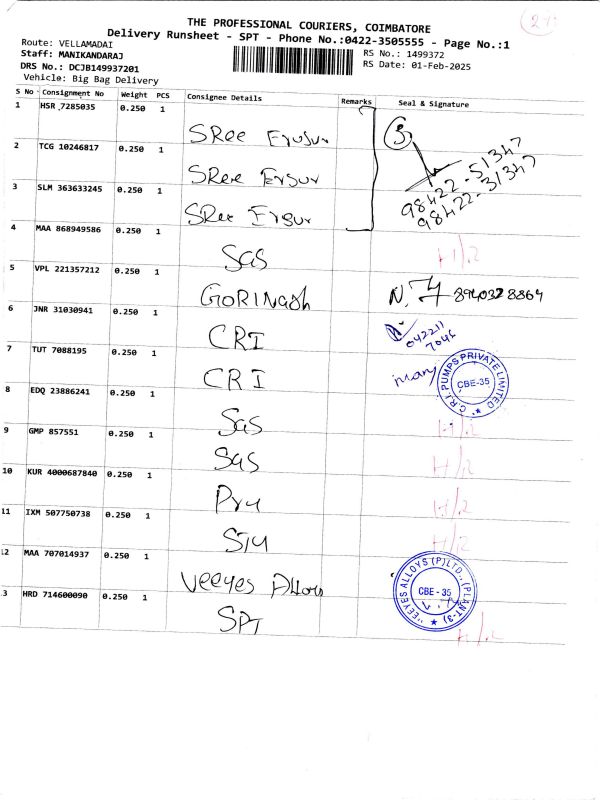 THE PROFESSIONAL COURIERS, COIMBATORE
Delivery Runsheet - SPT - Phone No.:0422-3505555 - Page No.:1
Route: VELLAMADAI
Staff: MANIKANDARAJ
DRS No.: DCJB149937201
Vehicle: Big Bag Delivery
RS No.: 1499372
RS Date: 01-Feb-2025
S No Consignment No Weight PCS Consignee Details Remarks Seal & Signature
1 HSR 7285035 0.250 1 SRee
2 TCG 10246817 0.250 1 SRee
3 SLM 363633245 0.250 1 SRee
3
98422-51347
98422-31347
4 MAA 868949586 0.250 1 SaS
5 VPL 221357212 0.250 1 8940328864
6 JNR 31030941 0.250 1 CRI
042211
7046
7 TUT 7088195 0.250 1 CRI
C.R.I PUMPS PRIVATE LIMITED
CBE-35
8 EDQ 23886241 0.250 1 SaS
9 GMP 857551 0.250 1 SaS
10 KUR 4000687840 0.250 1
11 IXM 507750738 0.250 1
12 MAA 707014937 0.250 1 Veeyes Alloys
VEEYES ALLOYS (P) LTD., (PLANT-3)
CBE - 35
3 HRD 714600090 0.250 1 SPT